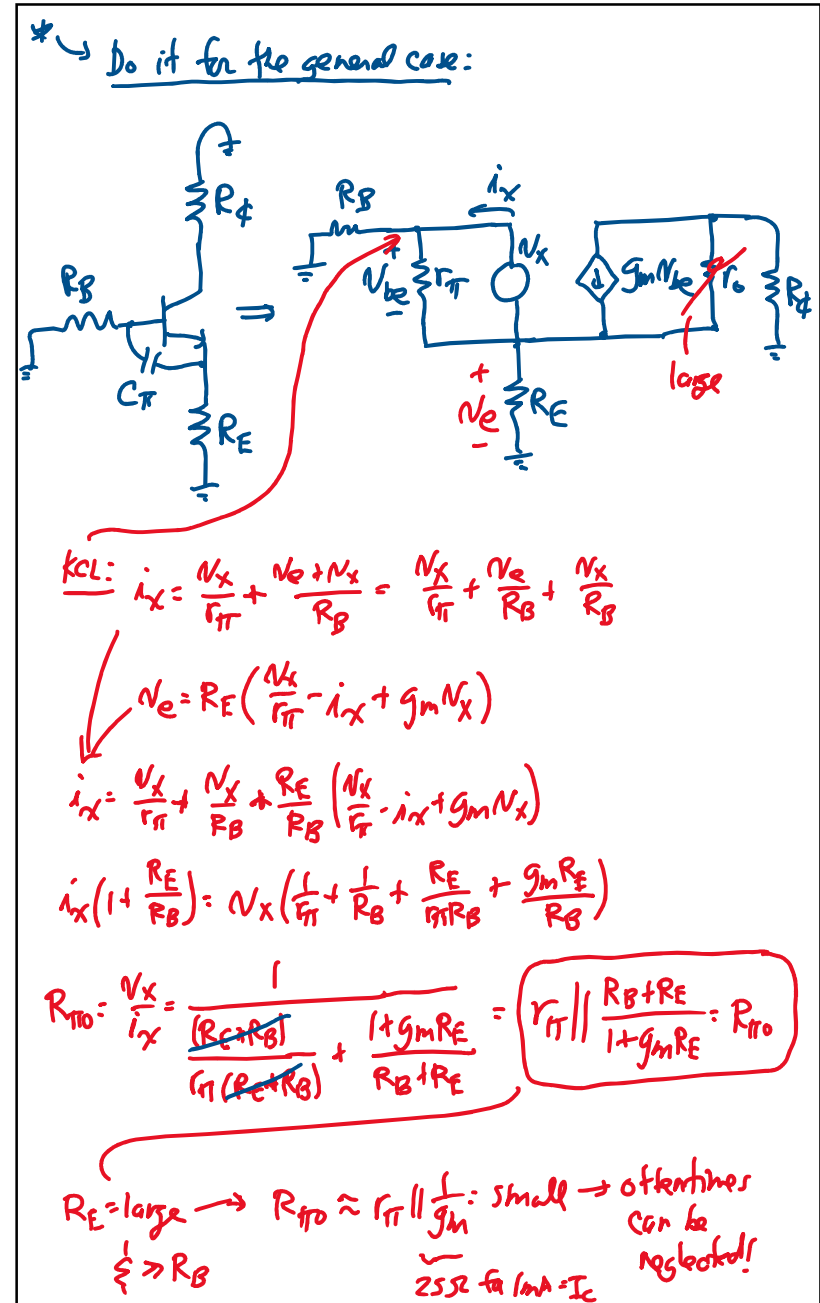 * ↳ Do it for the general case:
R_C
R_B
C_π
R_E
⇒
R_B
i_x
+
v_be
-
r_π
v_x
g_m v_be
r_o
R_C
large
+
v_e
-
R_E
KCL: i_x = v_x/r_π + (v_e + v_x)/R_B = v_x/r_π + v_e/R_B + v_x/R_B
v_e = R_E (v_x/r_π - i_x + g_m v_x)
i_x = v_x/r_π + v_x/R_B + R_E/R_B (v_x/r_π - i_x + g_m v_x)
i_x (1 + R_E/R_B) = v_x (1/r_π + 1/R_B + R_E/(r_π R_B) + g_m R_E/R_B)
R_πo = v_x/i_x = 1/((R_E+R_B)/(r_π (R_E+R_B)) + (1+g_m R_E)/(R_B+R_E)) = r_π || (R_B+R_E)/(1+g_m R_E) = R_πo
R_E = large → R_πo ≈ r_π || 1/g_m = small → oftentimes
& >> R_B
can be
neglected!
25Ω for 1mA = I_C